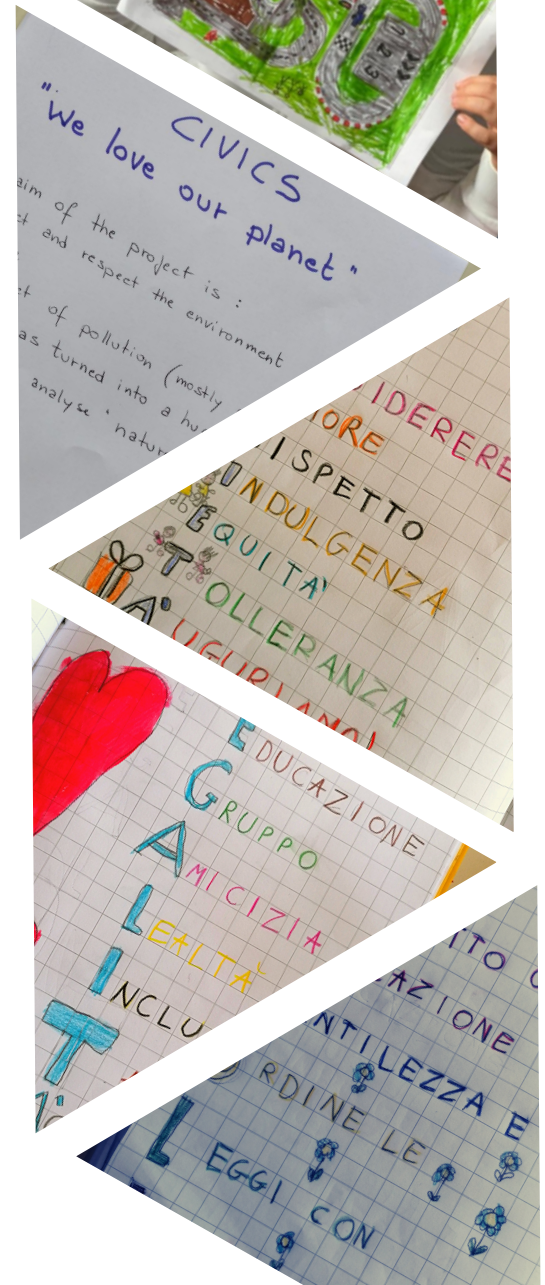 CIVICS
"We love our planet"
aim of the project is :
and respect the environment
of pollution (mostly
as turned into a hu
analyse 'natur
IDERERE
ORE
ISPETTO
INDULGENZA
EQUITA'
TOLLERANZA
A'
EDUCAZIONE
GRUPPO
AMICIZIA
LEALTÀ
INCLU
T
TTO
AZIONE
NTILEZZA E
RDINE LE
LEGGI CON